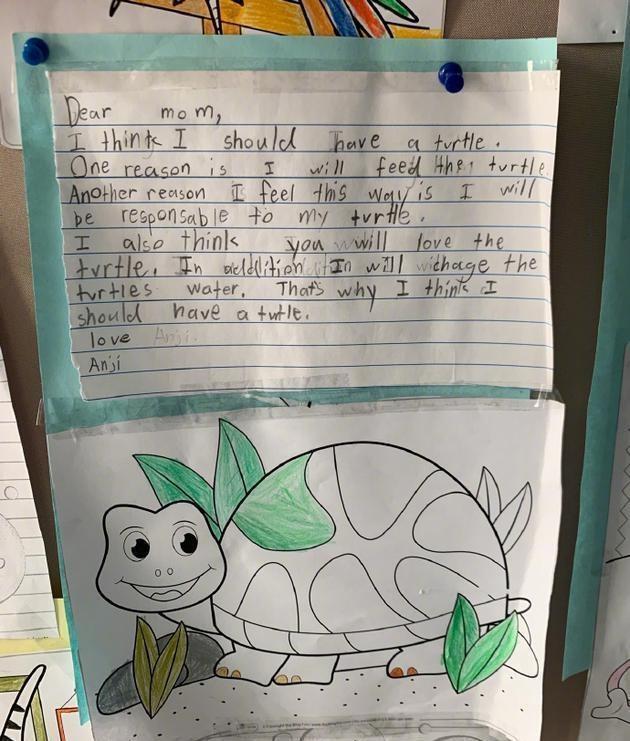 Dear mom,
I think I should have a turtle.
One reason is I will feed the turtle
Another reason I feel this way is I will
be responsable to my turtle.
I also think you will love the
turtle. In addition I will chage the
turtles water. That's why I think I
should have a turtle.
love Anji.
Anji